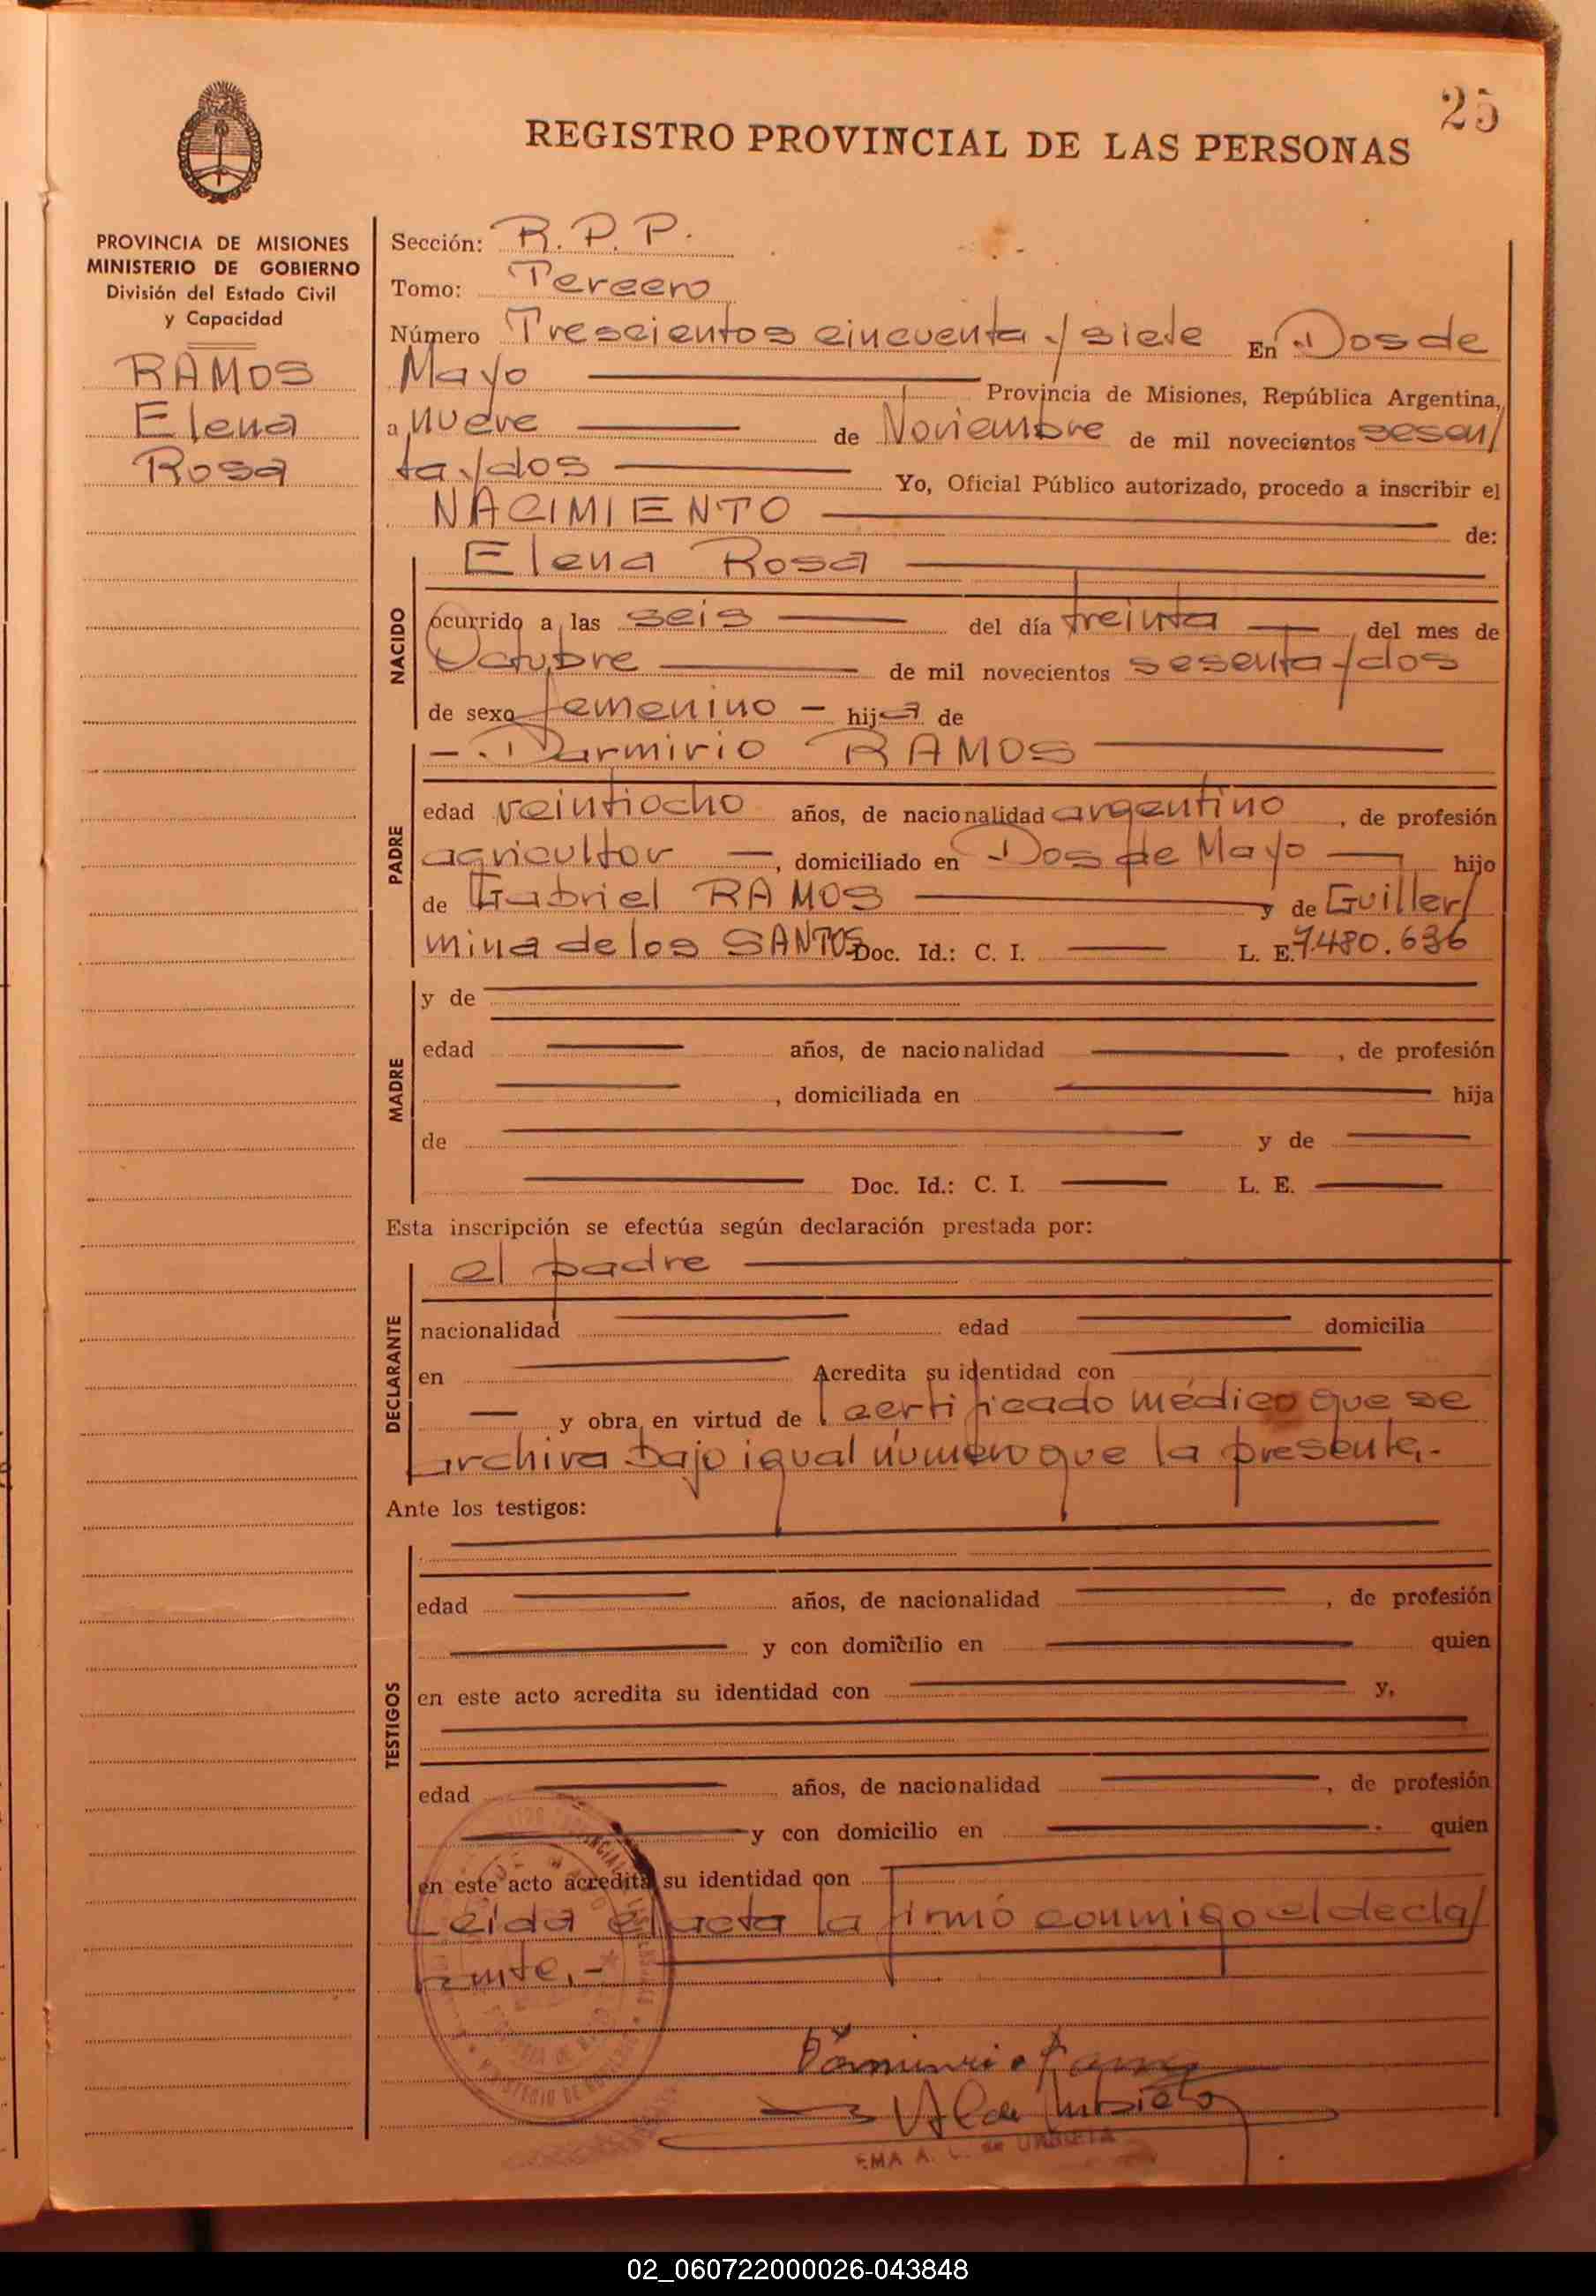 25
REGISTRO PROVINCIAL DE LAS PERSONAS
PROVINCIA DE MISIONES
MINISTERIO DE GOBIERNO
División del Estado Civil
y Capacidad
RAMOS
Elena
Rosa
Sección: R. P. P.
Tomo: Tercero
Número Trescientos cincuenta y siete En Dos de
Mayo Provincia de Misiones, República Argentina,
a nueve de Noviembre de mil novecientos sesen/
ta y dos Yo, Oficial Público autorizado, procedo a inscribir el
NACIMIENTO de:
NACIDO
Elena Rosa
ocurrido a las seis del día treinta, del mes de
Octubre de mil novecientos sesenta y dos
de sexo femenino - hija de
PADRE
-. Darmirio RAMOS
edad veintiocho años, de nacionalidad argentino, de profesión
agricultor, domiciliado en Dos de Mayo hijo
de Gabriel RAMOS y de Guiller/
mina de los SANTOS Doc. Id.: C. I. L. E. 7.480.636
MADRE
y de
edad años, de nacionalidad , de profesión
, domiciliada en hija
de y de
Doc. Id.: C. I. L. E.
Esta inscripción se efectúa según declaración prestada por:
DECLARANTE
el padre
nacionalidad edad domicilia
en Acredita su identidad con
y obra en virtud de certificado médico que se
archiva bajo igual número que la presente.-
Ante los testigos:
TESTIGOS
edad años, de nacionalidad , de profesión
y con domicilio en quien
en este acto acredita su identidad con y,
edad años, de nacionalidad , de profesión
y con domicilio en quien
en este acto acredita su identidad con
Leida el acta la firmó conmigo el decla/
rante.-
EMA A. L. de URBIETA
02_060722000026-043848